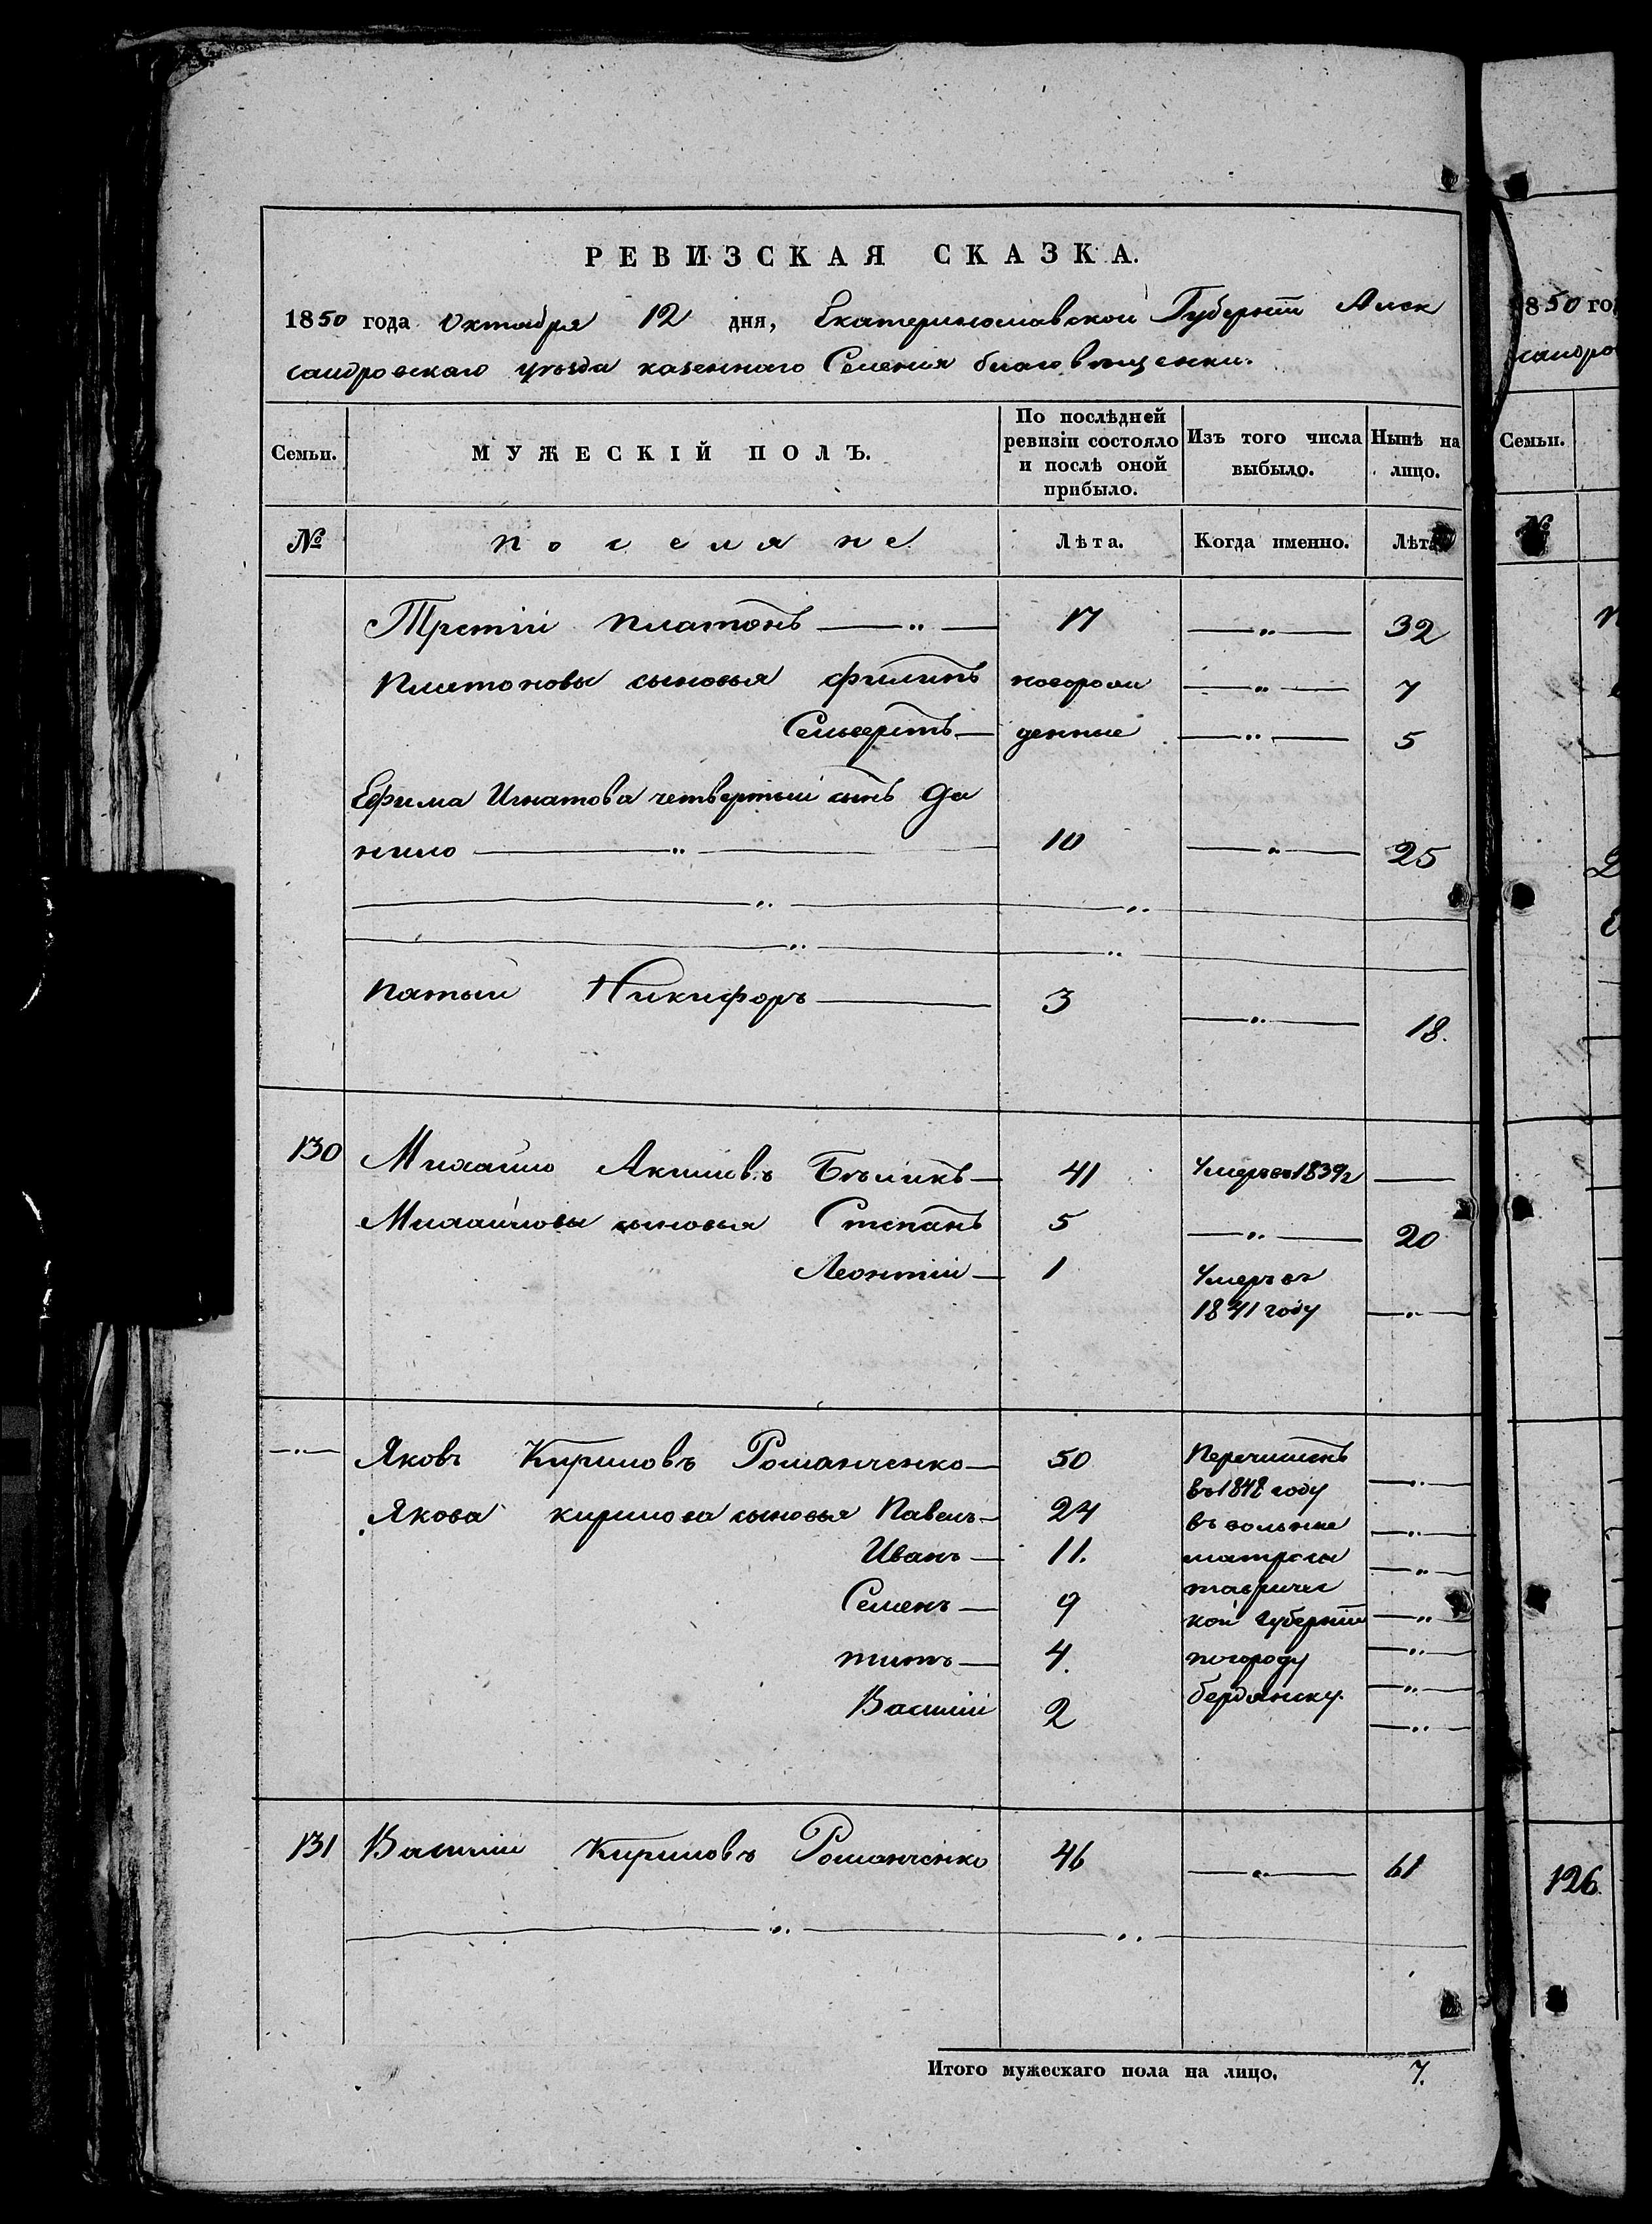 РЕВИЗСКАЯ СКАЗКА.
1850 года Октября 12 дня, Екатеринославской Губерніи Алек
сандровскаго уѣзда казеннаго Селенія благовѣщенки.
Семьи. МУЖЕСКІЙ ПОЛЪ. По послѣдней ревизіи состояло и послѣ оной прибыло. Изъ того числа выбыло. Нынѣ на лицо.
№ поселяне Лѣта. Когда именно. Лѣта
Третій Платонъ 17 — 32
Платоновы сыновья Филипъ новорож — 7
денные — 5
Ефима Игнатова четвертый сынъ Да
нило 10 — 25
пятый Никифоръ 3 — 18.
130 Михайло Акимовъ Бѣликъ 41 Умеръ въ 1839г —
Михайловы сыновья Степанъ 5 — 20
Леонтій 1 Умеръ въ
1841 году —
Яковъ Кириловъ Романченко 50 Перечисленъ
въ 1848 году —
Якова кирилова сыновья Павелъ 24 въ вольные —
Иванъ 11. матросы —
Семенъ 9 тавричес
кой губерніи —
титъ 4. погороду —
Василій 2 бердянску. —
131 Василій Кириловъ Романченко 46 — 61
Итого мужескаго пола на лицо. 7.
1850 го
сандро
Семьи.
№
126.